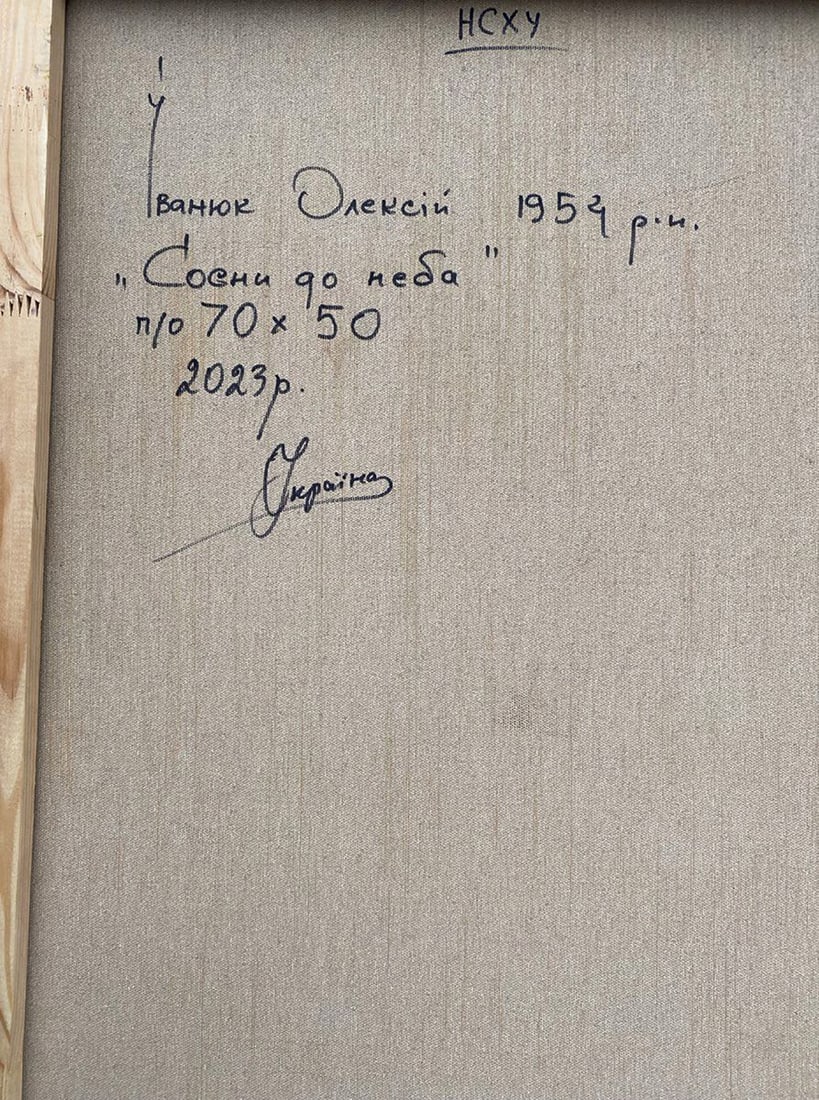 НСХУ
Іванюк Олексій 1954 р.н.
„Сосни до неба"
п/о 70 x 50
2023р.
Україна